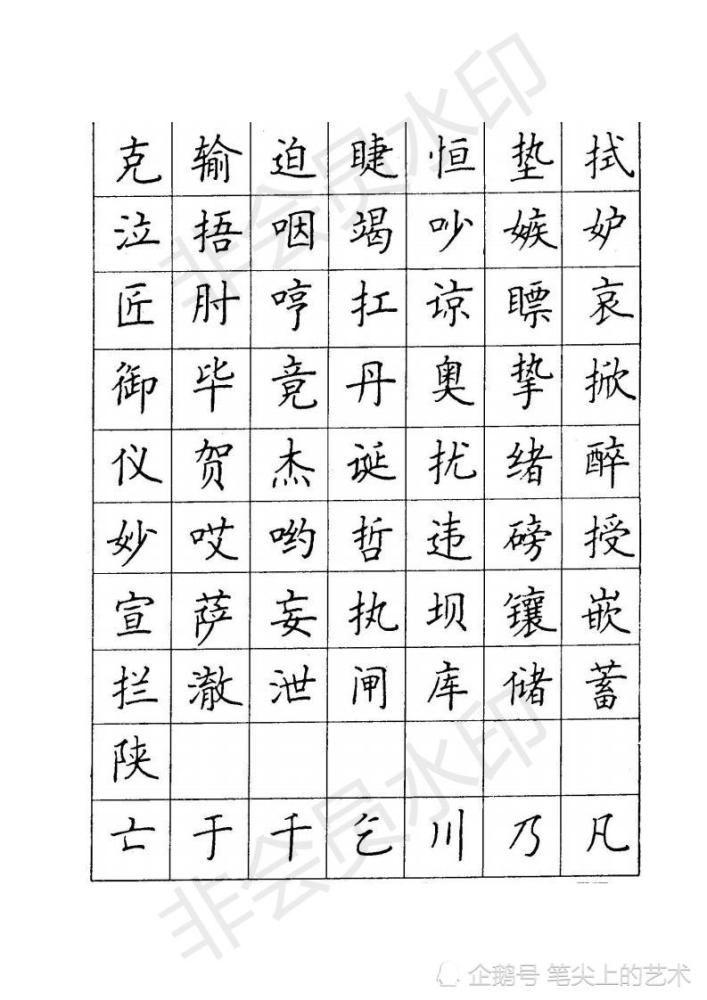 克 输 迫 睫 恒 垫 拭
泣 捂 咽 竭 吵 嫉 妒
匠 肘 哼 扛 谅 瞟 哀
御 毕 竟 丹 奥 挚 掀
仪 贺 杰 诞 扰 绪 醉
妙 哎 哟 哲 违 磅 授
宣 萨 妄 执 坝 镶 嵌
拦 澈 泄 闸 库 储 蓄
陕
亡 于 千 乞 川 乃 凡
非会员水印
非会员水印
企鹅号 笔尖上的艺术